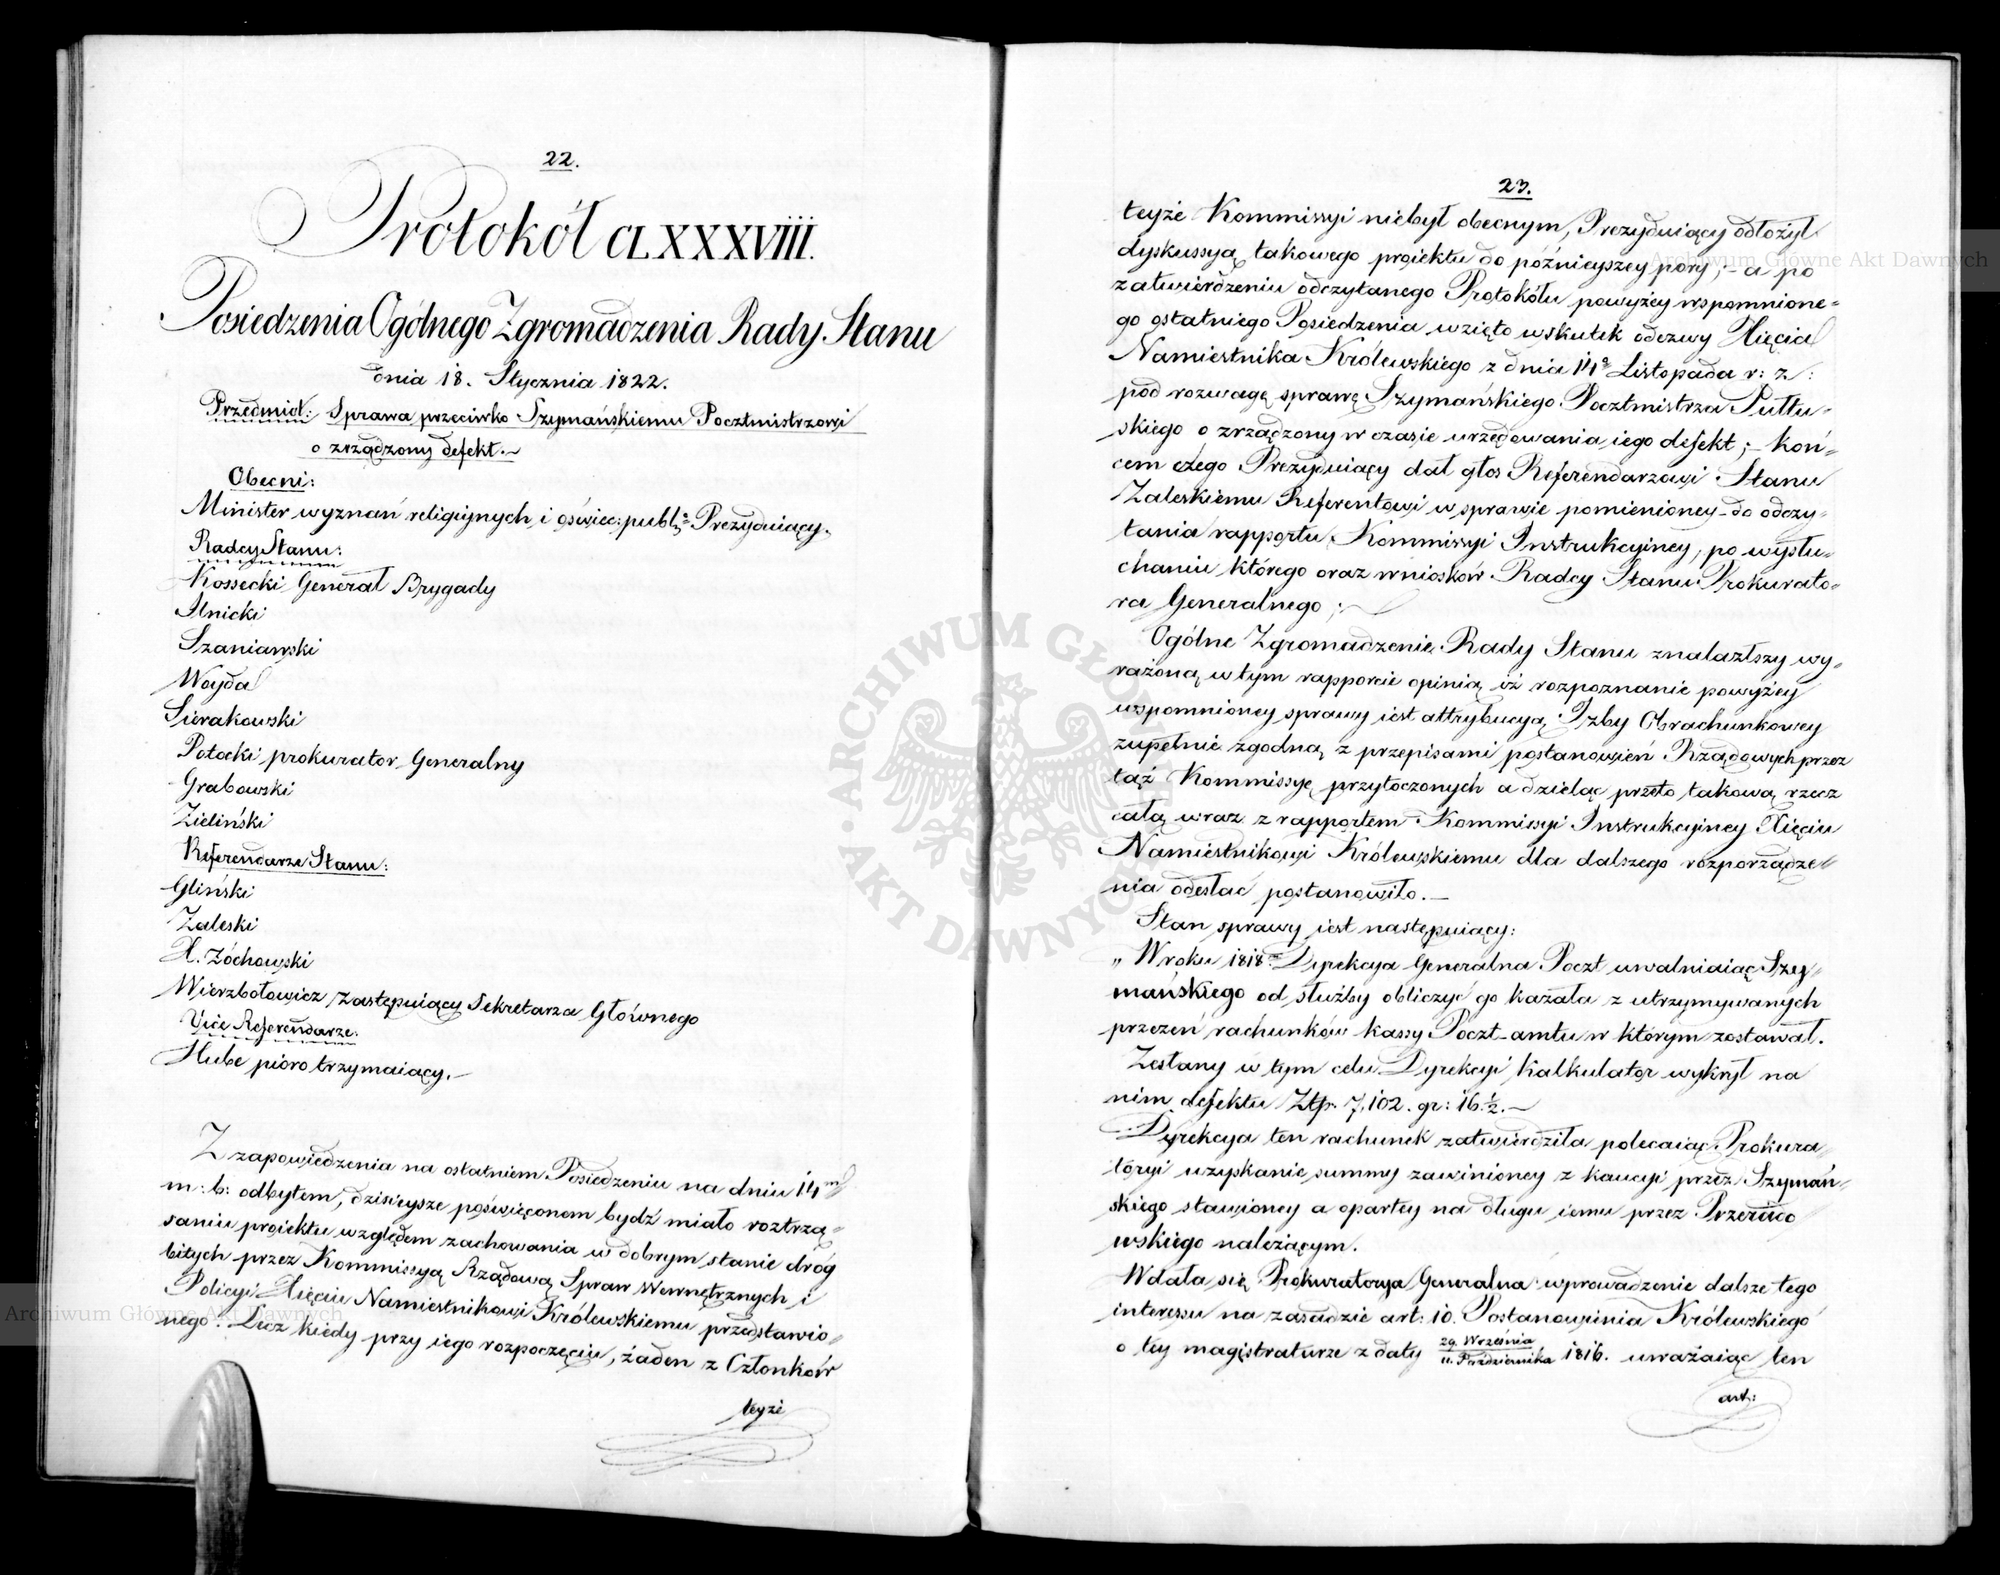 22.
Protokół CLXXXVIII.
Posiedzenia Ogólnego Zgromadzenia Rady Stanu
dnia 18. Stycznia 1822.
Przedmiot: Sprawa przeciwko Szymańskiemu Pocztmistrzowi
o zrządzony defekt.~
Obecni:
Minister wyznań religijnych i oświec: publ: Prezyduiący.
Radcy Stanu:
Kossecki Generał Brygady
Ilnicki
Szaniawski
Woyda
Sierakowski
Potocki prokurator Generalny
Grabowski
Zieliński
Referendarze Stanu:
Gliński
Zaleski
X. Żóchowski
Wierzbołowicz Zastępuiący Sekretarza Głównego
Vice Referendarze:
Hube pióro trzymaiący.—
Z zapowiedzenia na ostatniem Posiedzeniu na dniu 14
m: b: odbytem, dzisieysze poświęconem bydź miało roztrzą-
saniu projektu względem zachowania w dobrym stanie dróg
bitych przez Kommissyą Rządową Spraw Wewnętrznych i
Policyi Xięciu Namiestnikowi Królewskiemu przedstawio-
nego. Lecz kiedy przy iego rozpoczęciu, żaden z Członków
teyże
23.
teyże Kommissyi niebył obecnym, Prezyduiący odłożył
dyskussyą takowego projektu do późnieyszey pory; – a po
zatwierdzeniu odczytanego Protokółu powyżey wspomnione-
go ostatniego Posiedzenia wzięto wskutek odezwy Xięcia
Namiestnika Królewskiego z dnia 14 Listopada r: z:
pod rozwagę sprawę Szymańskiego Pocztmistrza Pułtu-
skiego o zrządzony w czasie urzędowania iego defekt; – koń-
cem czego Prezyduiący dał głos Referendarzowi Stanu
Zaleskiemu Referentowi w sprawie pomienioney do odczy-
tania rapportu Kommissyi Instrukcyiney, po wysłu-
chaniu którego oraz wniosków Radcy Stanu Prokurato-
ra Generalnego;
Ogólne Zgromadzenie Rady Stanu znalazłszy wy-
rażoną w tym rapporcie opinią iż rozpoznanie powyżey
wspomnioney sprawy iest attrybucyą Izby Obrachunkowey
zupełnie zgodną z przepisami postanowień Rządowych przez
taż Kommissyę przytoczonych a dzieląc przeto takową rzecz
całą wraz z rapportem Kommissyi Instrukcyiney Xięciu
Namiestnikowi Królewskiemu dla dalszego rozporządze-
nia odesłać postanowiło.—
Stan sprawy iest następuiący:
„W roku 1818 Dyrekcya Generalna Poczt uwalniaiąc Szy-
mańskiego od służby obliczyć go kazała z utrzymywanych
przezeń rachunków kassy Poczt-amtu w którym zostawał.
Zesłany w tym celu Dyrekcyi Kalkulator wykrył na
nim defektu Złp. 7,102. gr: 16.½.—
Dyrekcya ten rachunek zatwierdziła polecaiąc Prokura-
toryi uzyskanie summy zawinioney z kaucyi przez Szymań-
skiego stawioney a opartey na długu iemu przez Przerwo
wskiego należącym.
Wdała się Prokuratorya Generalna wprowadzenie dalsze tego
interessu na zasadzie art: 10. Postanowienia Królewskiego
o tey magistraturze z daty 29. Września / 11. Października 1816. uważaiąc ten
art:
ARCHIWUM GŁÓWNE AKT DAWNYCH
Archiwum Główne Akt Dawnych
Archiwum Główne Akt Dawnych